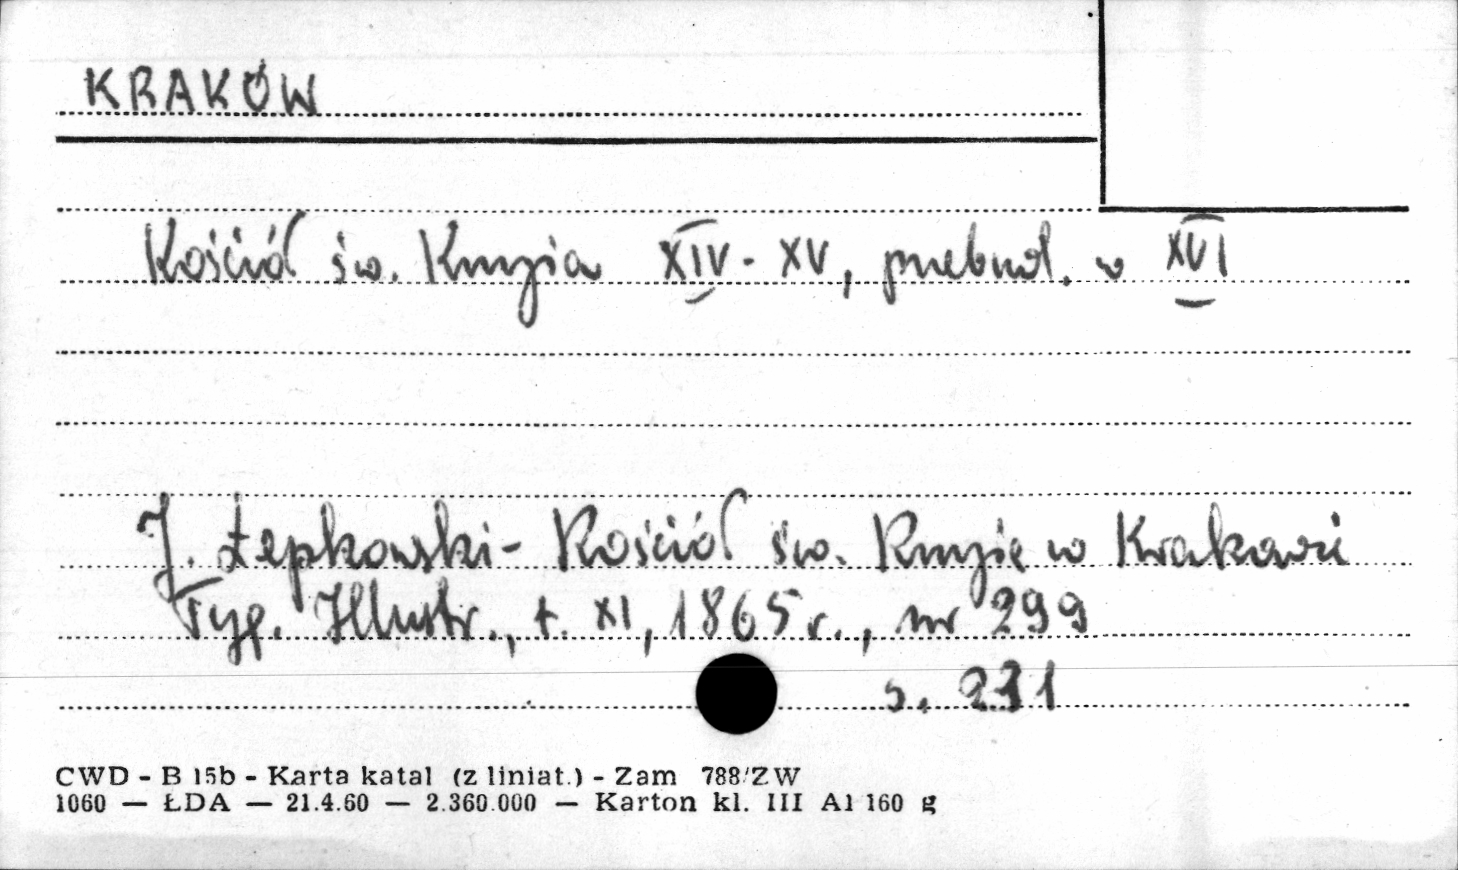 KRAKÓW
Kościół św. Krzyża XIV - XV, przebud. w XVI
J. Łepkowski - Kościół św. Krzyża w Krakowie
Tyg. Illustr., t. XI, 1865 r., nr 299
s. 231
CWD - B 15b - Karta katal (z liniat.) - Zam 788/ZW
1060 — ŁDA — 21.4.60 — 2.360.000 — Karton kl. III A1 160 g